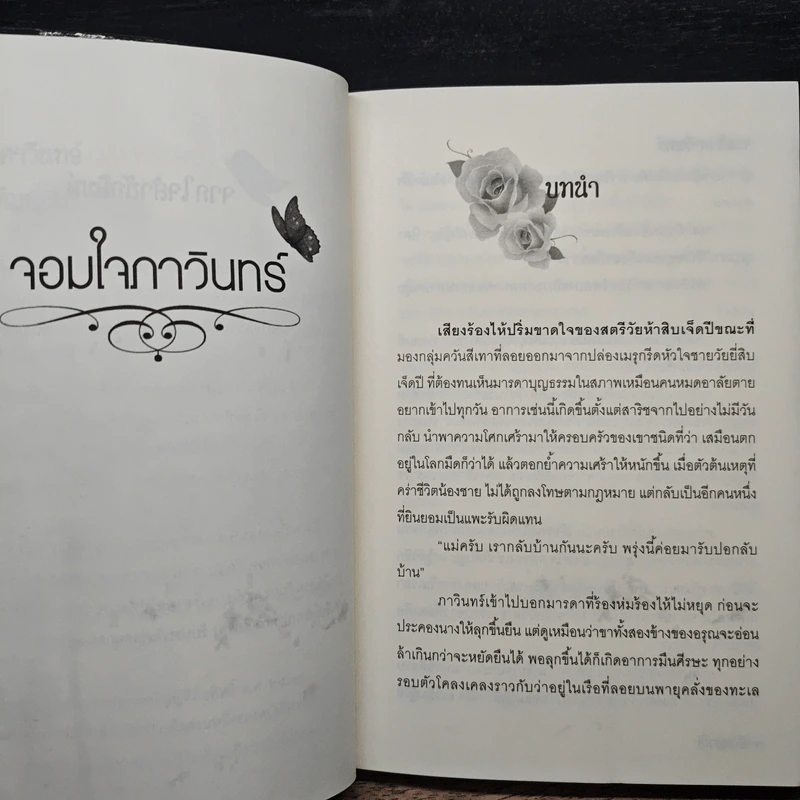 จอมใจภาวินทร์
บทนำ
เสียงร้องไห้ปริ่มขาดใจของสตรีวัยห้าสิบเจ็ดปีขณะที่
มองกลุ่มควันสีเทาที่ลอยออกมาจากปล่องเมรุกรีดหัวใจชายวัยยี่สิบ
เจ็ดปี ที่ต้องทนเห็นมารดาบุญธรรมในสภาพเหมือนคนหมดอาลัยตาย
อยากเข้าไปทุกวัน อาการเช่นนี้เกิดขึ้นตั้งแต่สาริชจากไปอย่างไม่มีวัน
กลับ นำพาความโศกเศร้ามาให้ครอบครัวของเขาชนิดที่ว่า เสมือนตก
อยู่ในโลกมืดก็ว่าได้ แล้วตอกย้ำความเศร้าให้หนักขึ้น เมื่อตัวต้นเหตุที่
คร่าชีวิตน้องชาย ไม่ได้ถูกลงโทษตามกฎหมาย แต่กลับเป็นอีกคนหนึ่ง
ที่ยินยอมเป็นแพะรับผิดแทน
“แม่ครับ เรากลับบ้านกันนะครับ พรุ่งนี้ค่อยมารับปอกลับ
บ้าน”
ภาวินทร์เข้าไปบอกมารดาที่ร้องห่มร้องไห้ไม่หยุด ก่อนจะ
ประคองนางให้ลุกขึ้นยืน แต่ดูเหมือนว่าขาทั้งสองข้างของอรุณจะอ่อน
ล้าเกินกว่าจะหยัดยืนได้ พอลุกขึ้นได้ก็เกิดอาการมึนศีรษะ ทุกอย่าง
รอบตัวโคลงเคลงราวกับว่าอยู่ในเรือที่ลอยบนพายุคลั่งของทะเล